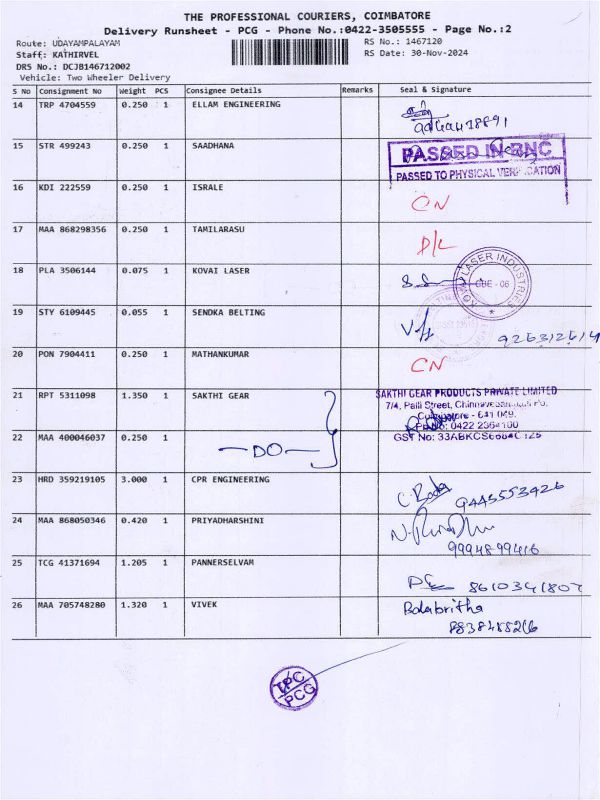 THE PROFESSIONAL COURIERS, COIMBATORE
Delivery Runsheet - PCG - Phone No.:0422-3505555 - Page No.:2
Route: UDAYAMPALAYAM RS No.: 1467120
Staff: KATHIRVEL RS Date: 30-Nov-2024
DRS No.: DCJB146712002
Vehicle: Two Wheeler Delivery
S No Consignment No Weight PCS Consignee Details Remarks Seal & Signature
14 TRP 4704559 0.250 1 ELLAM ENGINEERING
15 STR 499243 0.250 1 SAADHANA
PASSED IN BNC
PASSED TO PHYSICAL VERIFICATION
16 KDI 222559 0.250 1 ISRALE CN
17 MAA 868298356 0.250 1 TAMILARASU D/L
18 PLA 3506144 0.075 1 KOVAI LASER
KOVAI LASER INDUSTRIES
CBE - 06
19 STY 6109445 0.055 1 SENDKA BELTING
20 PON 7904411 0.250 1 MATHANKUMAR CN
21 RPT 5311098 1.350 1 SAKTHI GEAR
SAKTHI GEAR PRODUCTS PRIVATE LIMITED
7/4, Palli Street,
Coimbatore - 641 049.
22 MAA 400046037 0.250 1 -DO-
GST No:
23 HRD 359219105 3.000 1 CPR ENGINEERING
9443553426
24 MAA 868050346 0.420 1 PRIYADHARSHINI
9994899416
25 TCG 41371694 1.205 1 PANNERSELVAM
8610341807
26 MAA 705748280 1.320 1 VIVEK Balabritha
TPC
PCG